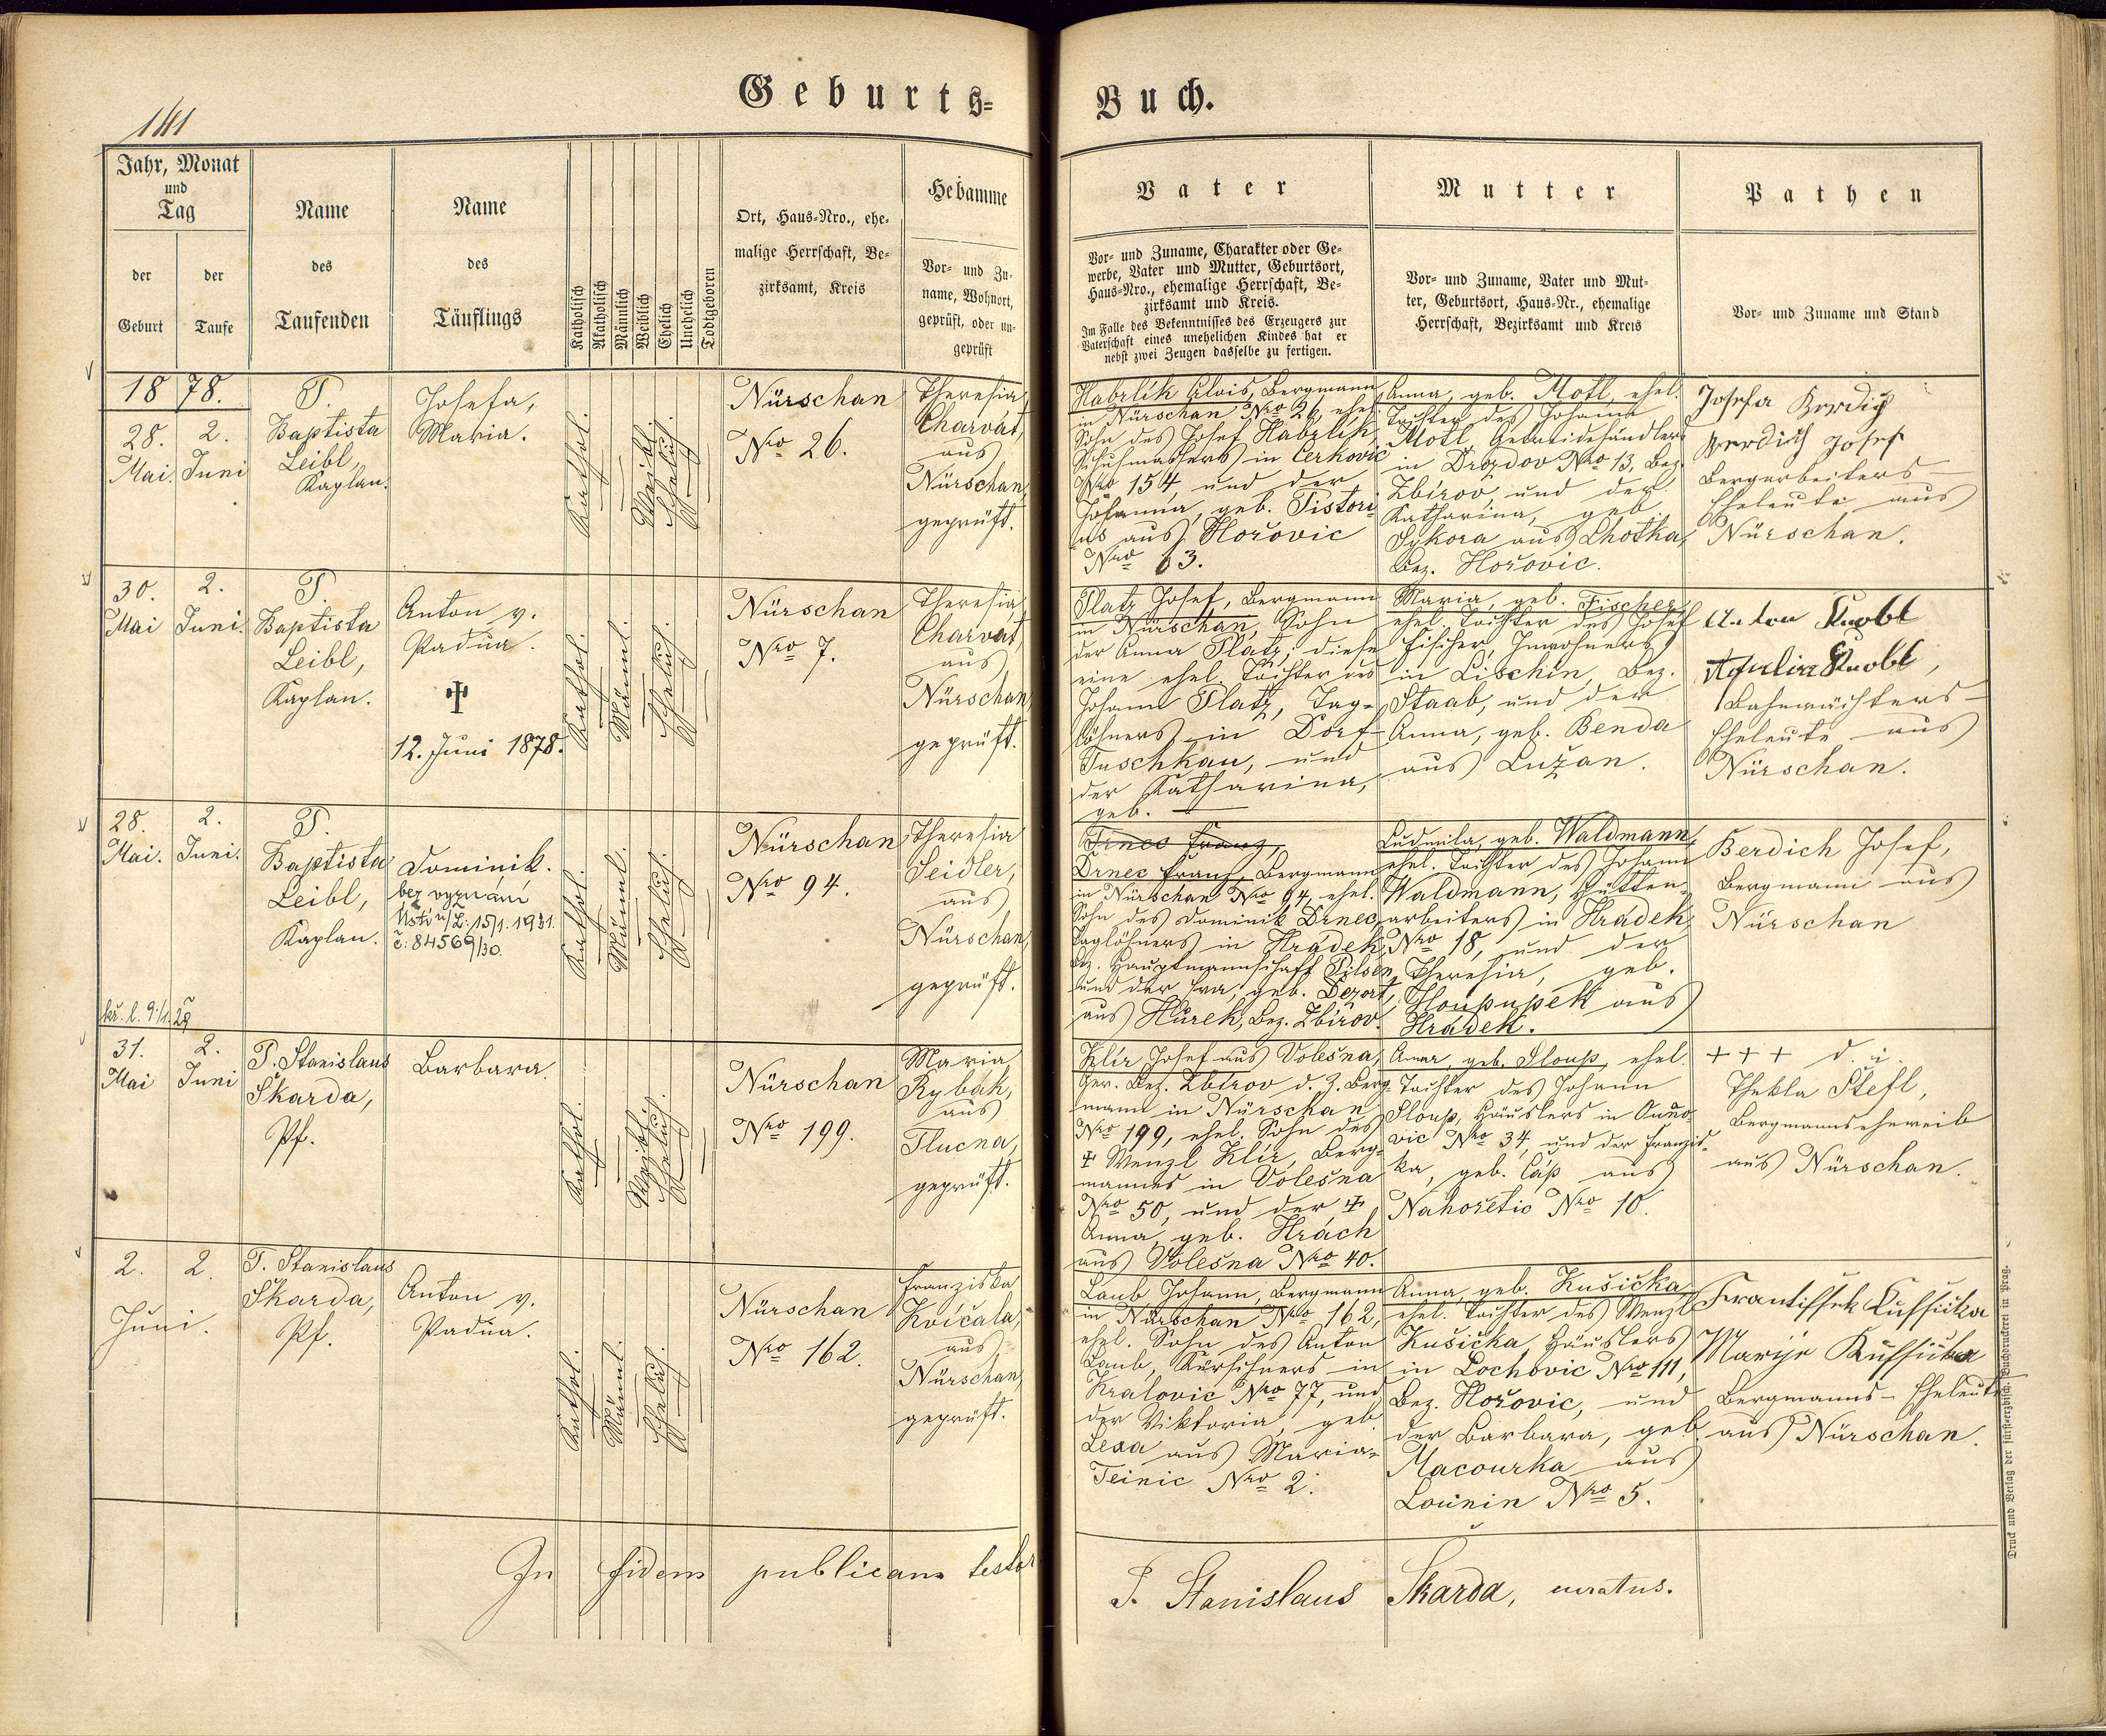 Geburts=
Buch.
141
Jahr, Monat
und
Tag
der
Geburt
der
Taufe
Name
des
Taufenden
Name
des
Täuflings
Katholisch
Akatholisch
Männlich
Weiblich
Ehelich
Unehelich
Todtgeboren
Ort, Haus-Nro., ehe-
malige Herrschaft, Be-
zirksamt, Kreis
Hebamme
Vor- und Zu-
name, Wohnort,
geprüft, oder un-
geprüft
Vater
Vor- und Zuname, Charakter oder Ge-
werbe, Vater und Mutter, Geburtsort,
Haus-Nro., ehemalige Herrschaft, Be-
zirksamt und Kreis.
Im Falle des Bekenntnisses des Erzeugers zur
Vaterschaft eines unehelichen Kindes hat er
nebst zwei Zeugen dasselbe zu fertigen.
Mutter
Vor- und Zuname, Vater und Mut-
ter, Geburtsort, Haus-Nr., ehemalige
Herrschaft, Bezirksamt und Kreis
Pathen
Vor- und Zuname und Stand
1878.
28.
Mai.
2.
Juni
P.
Baptista
Leibl,
Kaplan.
Josefa,
Maria.
Kathol.
Weibl.
Ehelich.
Nürschan
Nro 26.
Theresia
Charvát,
aus
Nürschan,
geprüft.
Habrlík Alois, Bergmann
in Nürschan Nro 26, ehel.
Sohn des Josef Habrlík,
Schuhmachers in Čerkovic
Nro 154, und der
Johanna, geb. Pistori-
us aus Hořovic
Nro 63.
Anna, geb. Motl, ehel.
Tochter des Johann
Motl, Getreidehändlers
in Drozdov Nro 13, Bez.
Zbirov, und der
Katharina, geb.
Sykora aus Lhotka,
Bez. Hořovic.
Josefa Berdich
Berdich Josef
Bergarbeiters-
Eheleute aus
Nürschan.
30.
Mai
2.
Juni.
P.
Baptista
Leibl,
Kaplan.
Anton v.
Padua.
✝
12. Juni 1878.
Kathol.
Männl.
Ehelich.
Nürschan
Nro 7.
Theresia
Charvát,
aus
Nürschan
geprüft.
Platz Josef, Bergmann
in Nürschan, Sohn
der Anna Platz; diese
eine ehel. Tochter des
Johann Platz, Tag-
löhners in Dorf-
Tuschkau, und
der Katharina,
geb. —
Maria, geb. Fischer,
ehel. Tochter des Josef
Fischer, Inwohners
in Lischin, Bez.
Staab, und der
Anna, geb. Benda
aus Lužan.
Anton Knobl
Knobl,
Bahnwächters-
Eheleute aus
Nürschan.
28.
Mai.
2.
Juni.
P.
Baptista
Leibl,
Kaplan.
Dominik.
bez vyznání
Ústí n/L: 15/1. 1931.
č: 84569/30.
kř. l. 9/1. 29
Kathol.
Männl.
Ehelich.
Nürschan
Nro 94.
Theresia
Seidler,
aus
Nürschan,
geprüft.
Franz,
Drnec Franz, Bergmann
in Nürschan Nro 94, ehel.
Sohn des Dominik Drnec,
Taglöhners in Hrádek,
Bez. Hauptmannschaft Pilsen
und der Eva, geb. Dezort,
aus Hůrek, Bez. Zbirov.
Ludmila, geb. Waldmann,
ehel. Tochter des Johann
Waldmann, Hütten-
arbeiters in Hrádek,
Nro 18, und der
Theresia, geb.
aus
Hrádek.
Berdich Josef,
Bergmann aus
Nürschan
31.
Mai
2.
Juni
P. Stanislaus
Škarda,
Pf.
Barbara.
Kathol.
Weibl.
Ehelich.
Nürschan
Nro 199.
Maria
Rybák,
aus
Tlucna,
geprüft.
Klír Josef aus Volešna,
Ger. Bez. Zbirov d. Z. Berg-
mann in Nürschan
Nro 199, ehel. Sohn des
✝ Wenzl Klír, Berg-
mannes in Volešna
Nro 50, und der ✝
Anna, geb. Hrách
aus Volešna Nro 40.
Anna, geb. Sloup, ehel.
Tochter des Johann
Sloup, Häuslers in
vic Nro 34, und der Franzis-
ka, geb. Čáp aus
Nahořetic Nro 10.
+++ d. i.
Thekla Štefl,
Bergmannseheweib
aus Nürschan.
2.
Juni.
2.
P. Stanislaus
Škarda,
Pf.
Anton v.
Padua.
Kathol.
Männl.
Ehelich.
Nürschan
Nro 162.
Franziska
Kvíčala,
aus
Nürschan,
geprüft.
Laub Johann, Bergmann
in Nürschan Nro 162,
ehel. Sohn des Anton
Laub, Kürschners in
Kralovic Nro 77, und
der Viktoria, geb.
Lexa aus Maria-
Teinic Nro 2.
Anna, geb. Kušička,
ehel. Tochter des Wenzl
Kušička, Häuslers
in Lochovic Nro 111,
Bez. Hořovic, und
der Barbara, geb.
Macourka aus
Lounin Nro 5.
Frantissek Kussička
Marije Kussička
Bergmanns-Eheleute
aus Nürschan.
In fidem publicam testor
P. Stanislaus Škarda, curatus.
Druck und Verlag der fürst-erzbisch. Buchdruckerei in Prag.